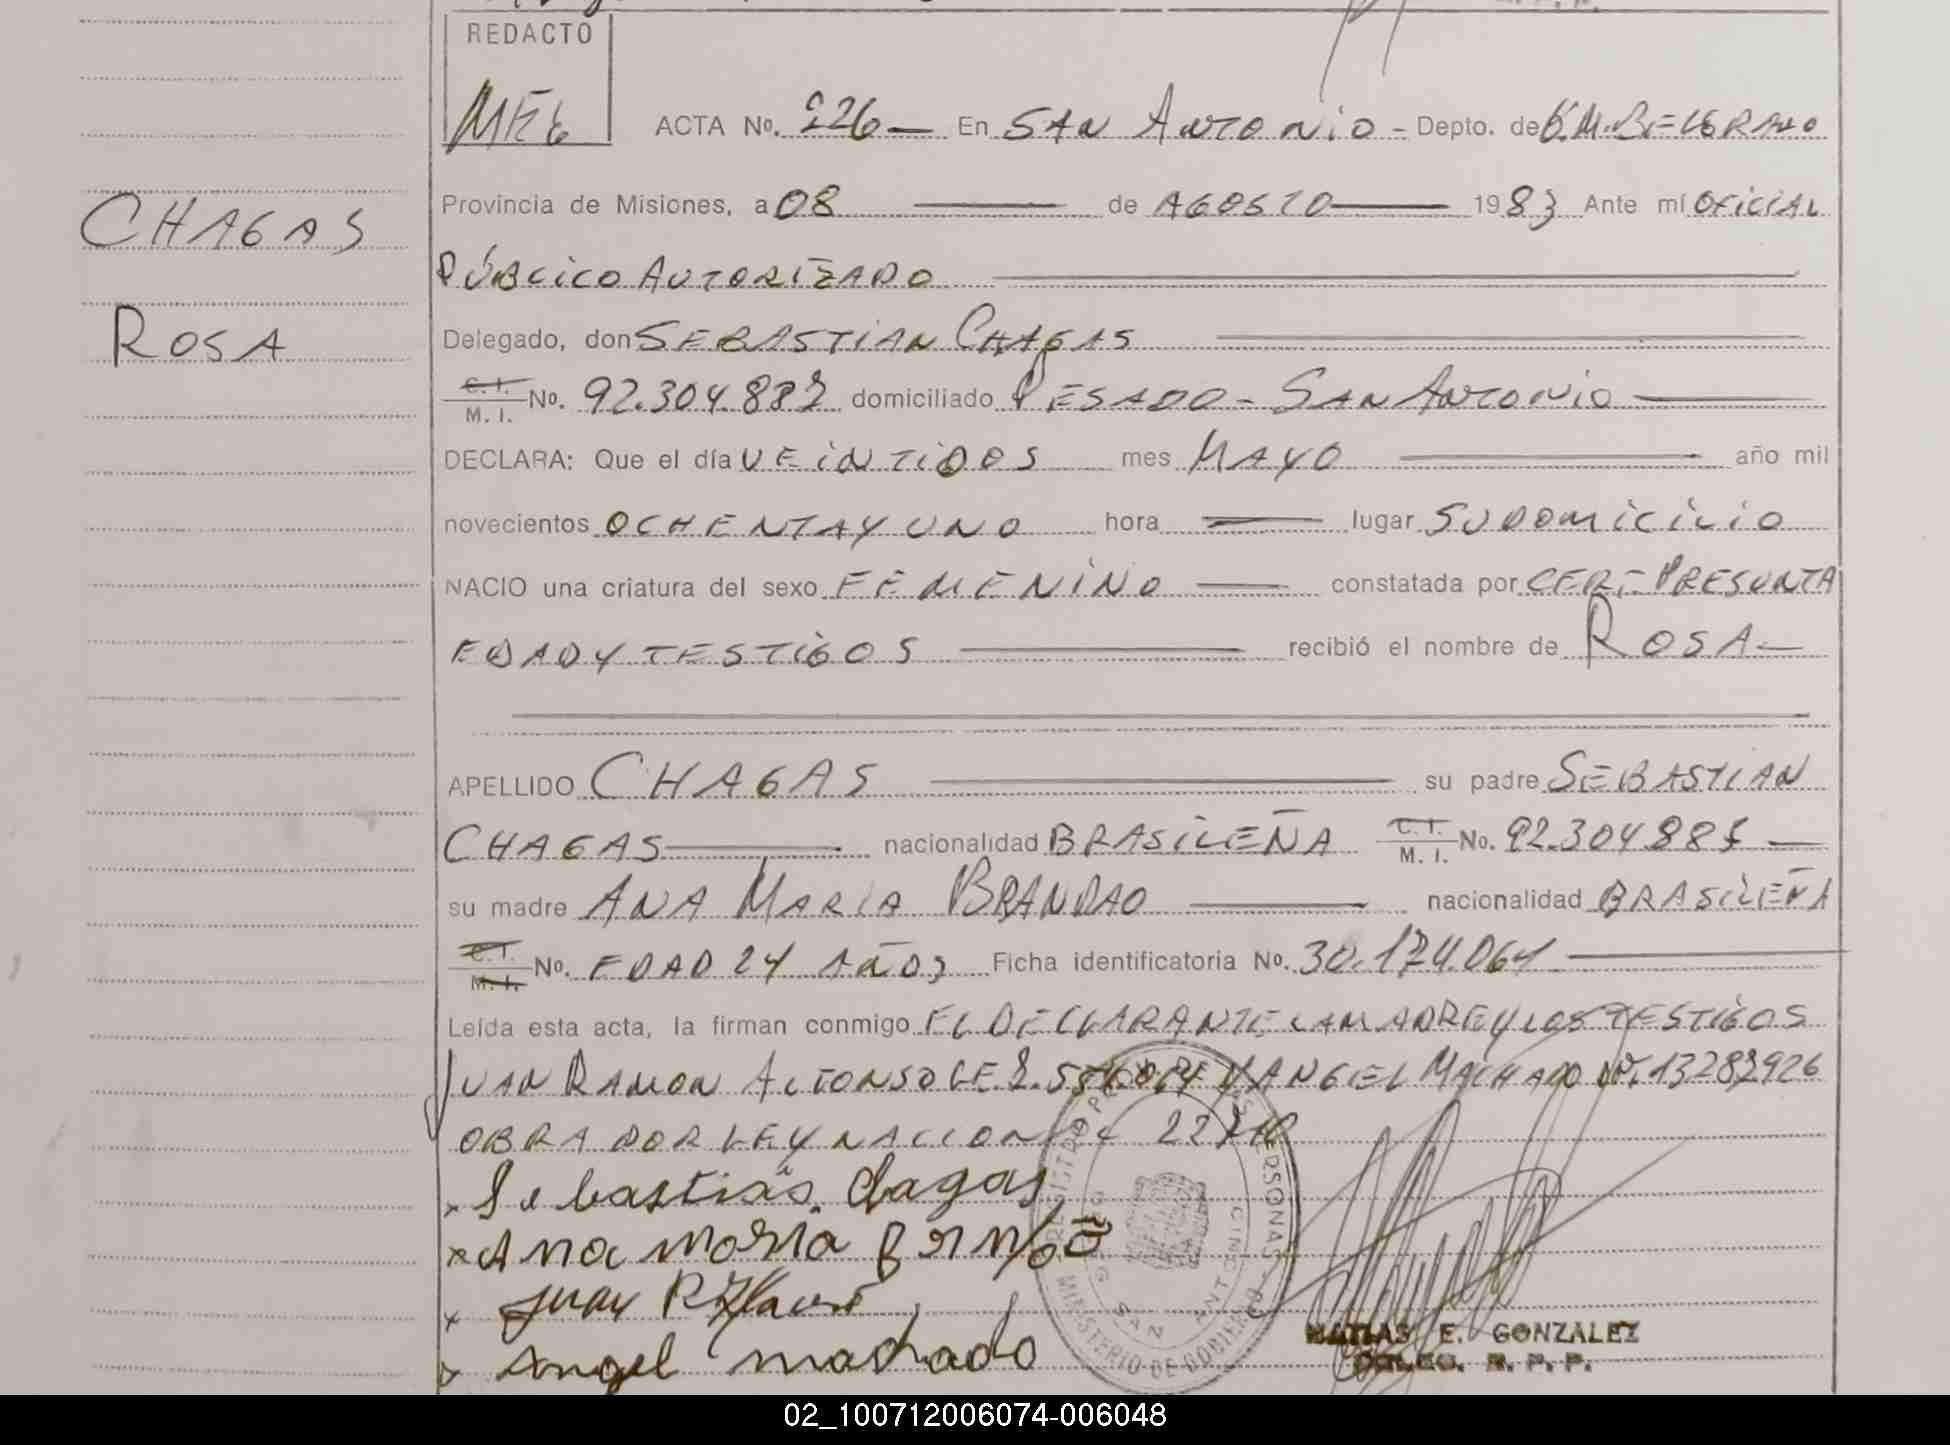 REDACTO
ACTA No. 226 En SAN ANTONIO - Depto. de G.M. BELGRANO
CHAGAS
Provincia de Misiones, a 08 de AGOSTO 1983 Ante mí OFICIAL
PÚBLICO AUTORIZADO
ROSA
Delegado, don SEBASTIAN CHAGAS
C. I. M. I. No. 92.304.887 domiciliado PESADO - SAN ANTONIO
DECLARA: Que el día VEINTIDOS mes MAYO año mil
novecientos OCHENTA Y UNO hora lugar SU DOMICILIO
NACIO una criatura del sexo FEMENINO constatada por CERT. PRESUNTA
EDAD Y TESTIGOS recibió el nombre de ROSA
APELLIDO CHAGAS su padre SEBASTIAN
CHAGAS nacionalidad BRASILEÑA C. I. M. I. No. 92.304.887
su madre ANA MARIA BRANDAO nacionalidad BRASILEÑA
C. I. M. I. No. EDAD 24 AÑOS Ficha identificatoria No. 30.174.061
Leída esta acta, la firman conmigo EL DECLARANTE LA MADRE Y LOS TESTIGOS
JUAN RAMON ALFONSO LE Y ANGEL MACHADO 13282926
OBRADOR LEY NACIONAL
x Sebastiás Chagas
x Ana maria
x Juan R
x Angel machado
REGISTRO PERSONAS
MINISTERIO DE GOBIERNO
SAN ANTONIO
MATIAS E. GONZALEZ
R. P. P.
02_100712006074-006048